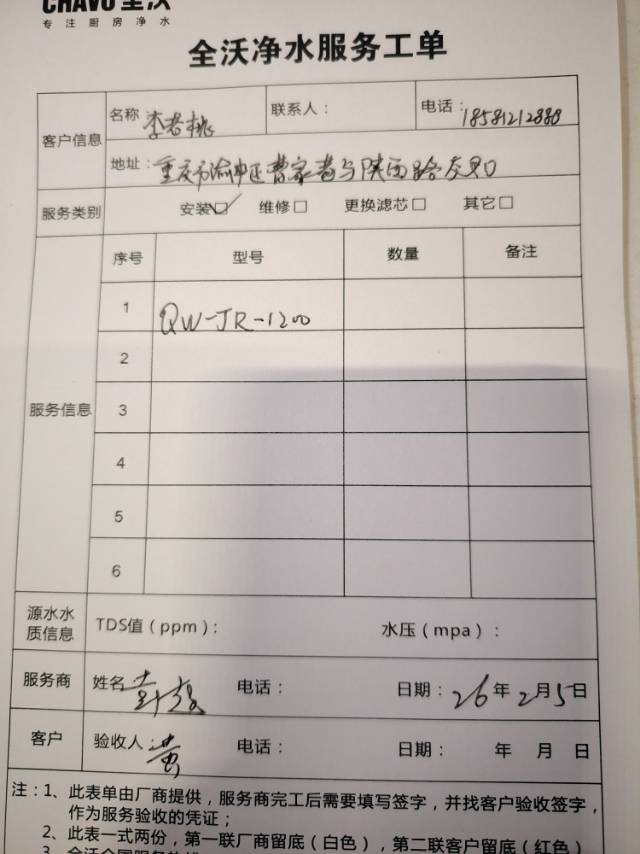 CHAVO全沃
专注厨房净水
全沃净水服务工单
客户信息 名称 李老桃 联系人： 电话：18581212880
地址：重庆市渝中区曹家巷与陕西路交叉口
服务类别 安装☑ 维修□ 更换滤芯□ 其它□
服务信息 序号 型号 数量 备注
1 QW-JR-1200
2
3
4
5
6
源水水质信息 TDS值（ppm）： 水压（mpa）：
服务商 姓名 电话： 日期：26年2月5日
客户 验收人：黄 电话： 日期： 年 月 日
注：1、此表单由厂商提供，服务商完工后需要填写签字，并找客户验收签字，
作为服务验收的凭证；
2、此表一式两份，第一联厂商留底（白色），第二联客户留底（红色）